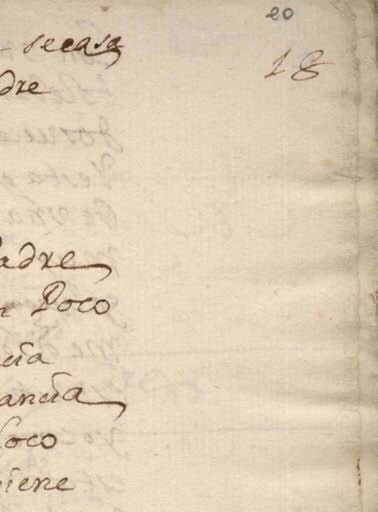 20
secasa
18
dre
adre
Poco
cia
ancia
loco
iene